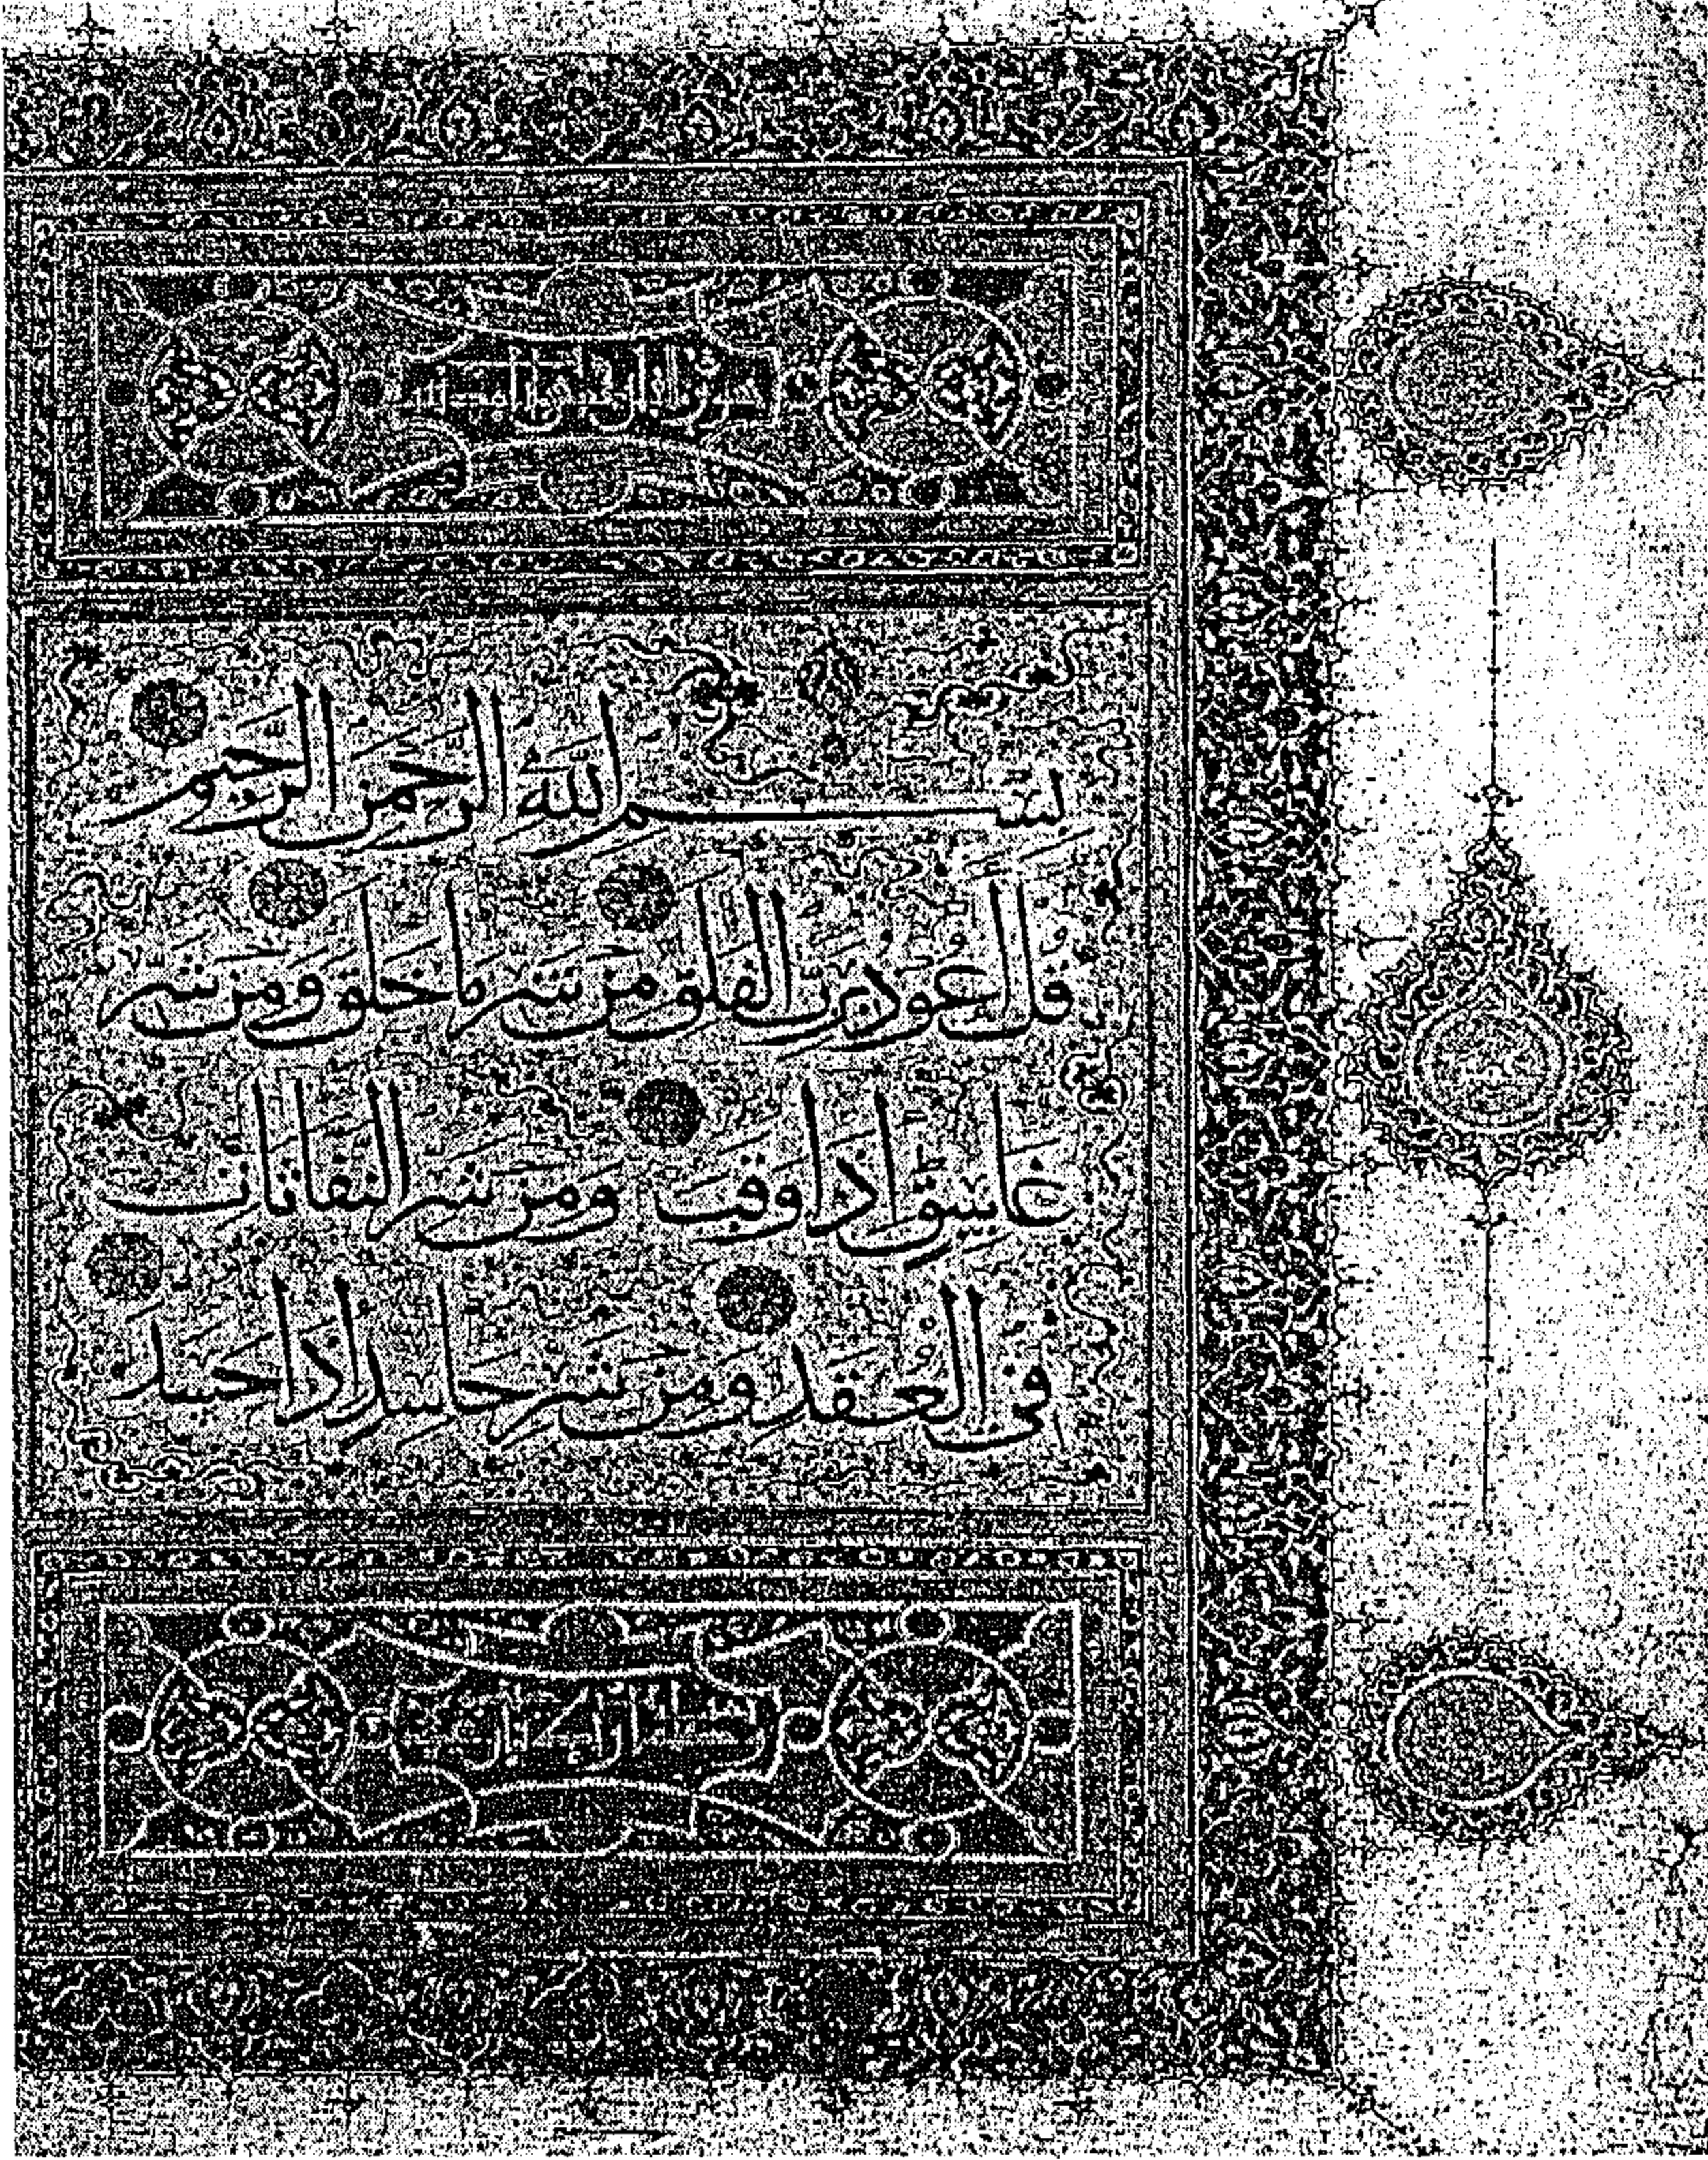 بسم الله الرحمن الرحيم
قل أعوذ برب الفلق من شر ما خلق ومن شر
غاسق إذا وقب ومن شر النفاثات
في العقد ومن شر حاسد إذا حسد